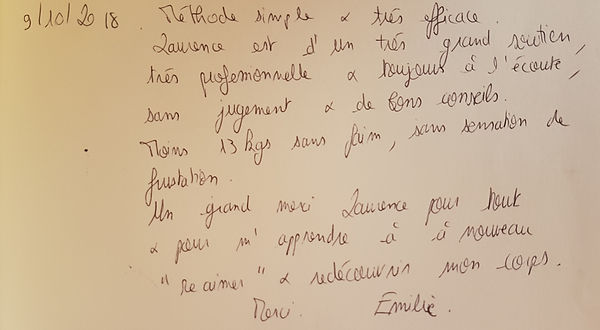 9/10/2018. Méthode simple & très efficace.
Laurence est d'un très grand soutien,
très professionnelle & toujours à l'écoute,
sans jugement & de bons conseils.
Moins 13 kgs sans faim, sans sensation de
frustation.
Un grand merci Laurence pour tout
& pour m'apprendre à à nouveau
"re aimer" & redécouvrir mon corps.
Merci. Emilie.